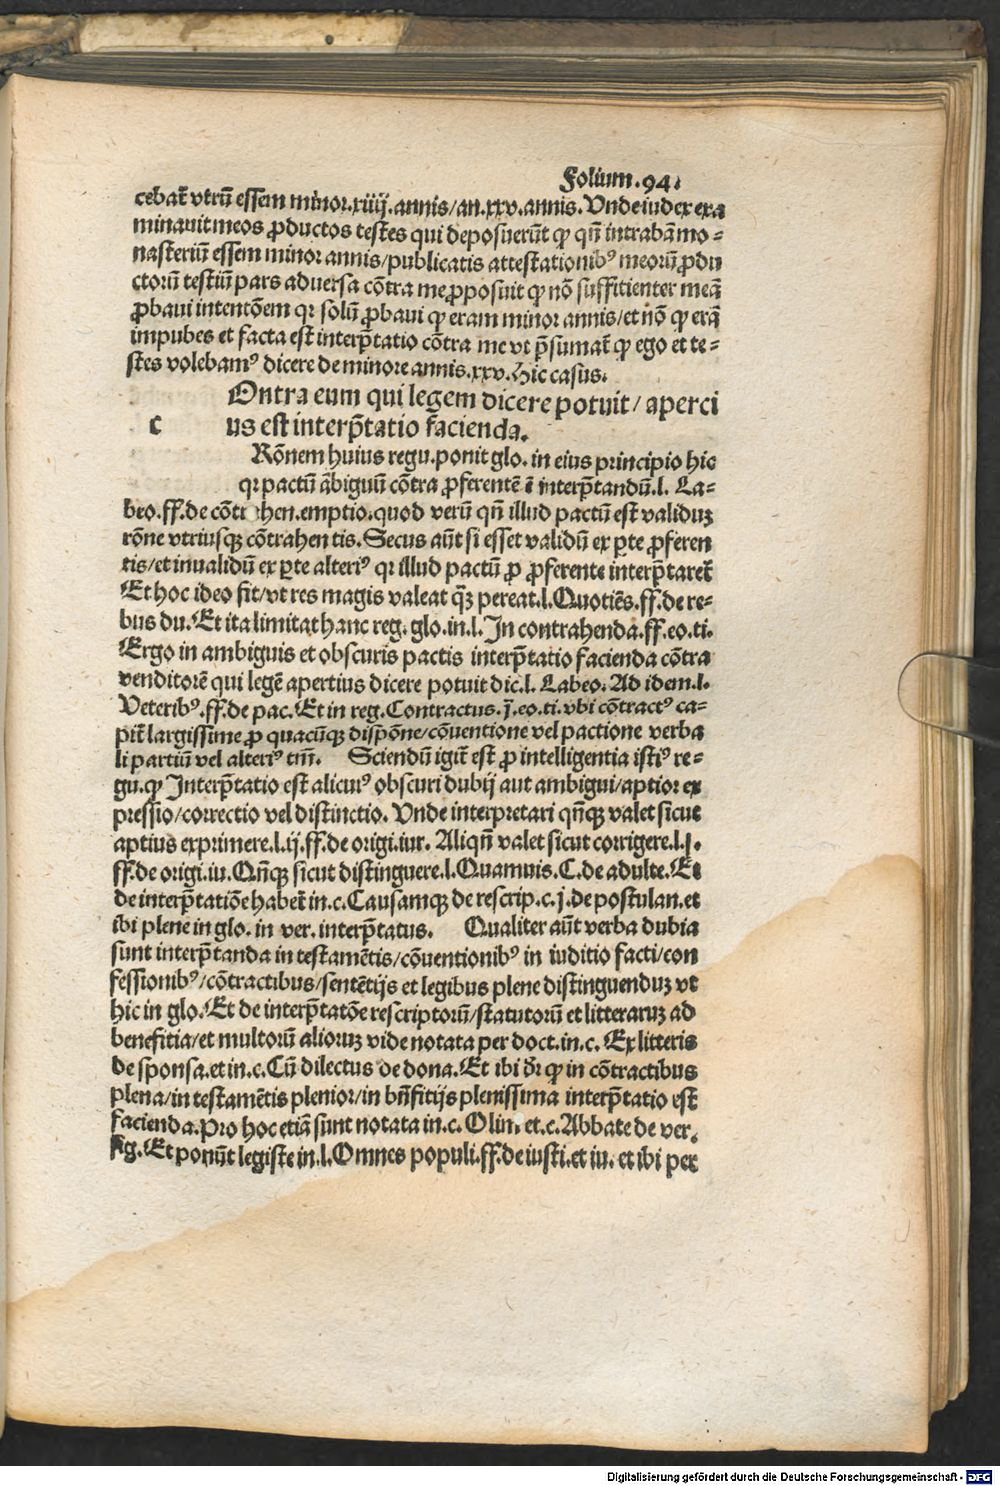 Folium.94.
cebat᷑ vtrū essem minor.xiiij.annis/an.xxv.annis. Vnde iudex exa
minauit meos ꝓductos testes qui deposuerūt ꝙ qn̄ intrabā mo⸗
nasteriū essem minor annis/publicatis attestationibꝰ meorū ꝓdu
ctorū testiū pars aduersa cōtra me ꝓposuit ꝙ nō suffitienter meā
ꝓbaui intentōem qꝛ solū ꝓbaui ꝙ eram minor annis/et nō ꝙ erā
impubes et facta est interp̄tatio cōtra me vt p̄sumat᷑ ꝙ ego et te⸗
stes volebamꝰ dicere de minore annis.xxv. Hic casus.
Ontra eum qui legem dicere potuit/ aperci
c us est interp̄tatio facienda.
Rōnem huius regu.ponit glo. in eius principio hic
qꝛ pactū ābiguū cōtra ꝓferentē ē interp̄tandū.l. La⸗
beo.ff.de cōtrahen.emptio.quod verū qn̄ illud pactū est validuꝫ
rōne vtriusqꝫ cōtrahentis. Secus aūt si esset validū ex ꝑte ꝓferen
tis/et inualidū ex ꝑte alteriꝰ qꝛ illud pactū ꝓ ꝓferente interp̄taret᷑
Et hoc ideo fit/vt res magis valeat qꝫ̄ pereat.l.Quotiēs.ff.de re⸗
bus du. Et ita limitat hanc reg. glo.in.l. In contrahenda.ff.eo.ti.
Ergo in ambiguis et obscuris pactis interp̄tatio facienda cōtra
venditorē qui legē apertius dicere potuit dic.l. Labeo. Ad idem.l.
Veteribꝰ.ff.de pac. Et in reg. Contractus.j̄.eo.ti.vbi cōtractꝰ ca⸗
pit᷑ largissime ꝓ quacūqꝫ dispōne/cōuentione vel pactione verba
li partiū vel alteriꝰ tm̄. Sciendū igit᷑ est ꝓ intelligentia istiꝰ re⸗
gu.ꝙ Interp̄tatio est alicuiꝰ obscuri dubij aut ambigui/aptior ex
pressio/correctio vel distinctio. Vnde interpretari qn̄qꝫ valet sicut
aptius exprimere.l.ij.ff.de origi.iur. Aliqn̄ valet sicut corrigere.l.j.
ff.de origi.iu. Qn̄qꝫ sicut distinguere.l.Quamuis. C. de adulte. Et
de interp̄tatiōe habet᷑ in.c.Causamqꝫ de rescrip.c.j.de postulan.et
ibi plene in glo. in ver. interp̄tatus. Qualiter aūt verba dubia
sunt interp̄tanda in testamētis/cōuentionibꝰ in iuditio facti/con
fessionibꝰ/cōtractibus/sentētijs et legibus plene distinguenduꝫ vt
hic in glo. Et de interp̄tatōe rescriptorū/statutorū et litteraruꝫ ad
benefitia/et multorū alioruꝫ vide notata per doct.in.c. Ex litteris
de sponsa.et in.c.Cū dilectus de dona. Et ibi dr̄ ꝙ in cōtractibus
plena/in testamētis plenior/in bn̄fitijs plenissima interp̄tatio est
facienda. Pro hoc etiā sunt notata in.c. Olim. et.c. Abbate de ver.
sig. Et ponūt legiste in.l.Omnes populi.ff.de iusti.et iu. et ibi per
Digitalisierung gefördert durch die Deutsche Forschungsgemeinschaft - DFG